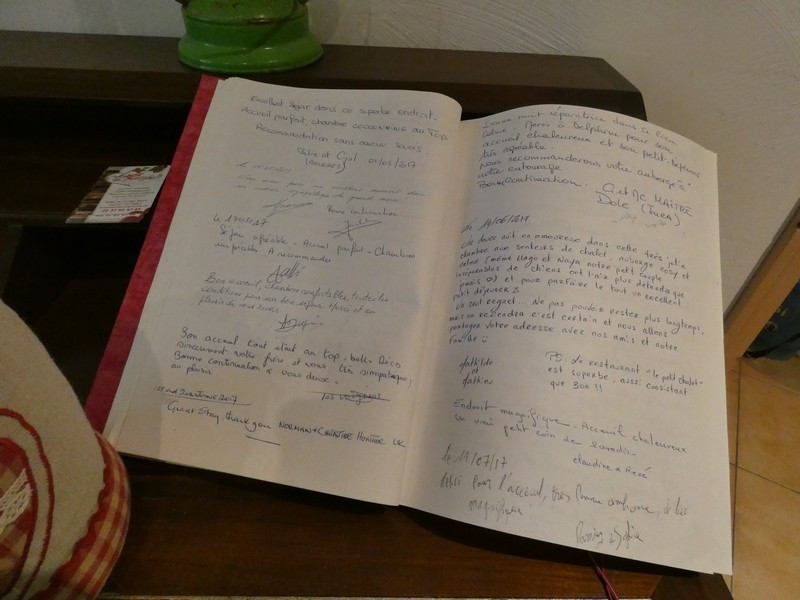 Excellent séjour dans ce superbe endroit.
Accueil parfait, chambre COCOONING au TOP
Recommandation sans aucun soucis.
et Cyril 01/05/2017
Bonne continuation
Le 17/05/17
Séjour agréable - Accueil parfait - Chambres
impeccables. A recommander
Bon accueil, chambre confortable, toutes les
conditions pour un bon séjour. Merci et au
plaisir de vous revoir.
Bon accueil tout était au top. belle Déco
sincèrement votre frère et vous êtes sympathiques,
Bonne continuation à vous deux.
au plaisir
June 2017
Great Stay, thank you NORMAN + CHRISTINE UK
Bonne nuit réparatrice dans ce lieu
calme. Merci à Delphine pour son
accueil chaleureux et son petit-déjeuner
très agréable
Nous recommanderons votre auberge à
notre entourage
Bonne Continuation. G. et MC MAITRE
Dole (Jura)
14/06/2017
Une douce nuit en amoureux dans cette très jolie
chambre aux senteurs de chalet, auberge cosy et
calme (même Hugo et Naya notre petit couple
inséparables de chiens ont été plus détendu que
jamais) et pour parfaire le tout un excellent
petit déjeuner
Un seul regret... Ne pas pouvoir rester plus longtemps,
mais on reviendra c'est certain et nous allons
partager votre adresse avec nos amis et notre
famille
Mathilde
et
Mathieu
PS: Le restaurant "le petit chalet"
est superbe, aussi consistant
que Bon !!
Endroit magnifique - Accueil chaleureux
Un vrai petit coin de paradis -
Claudine et René
Le 11/07/17
Merci pour l'accueil, très bonne ambiance,
magnifique